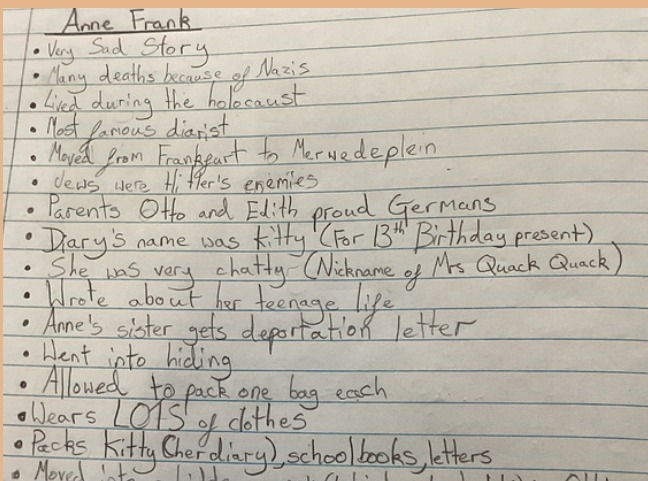 Anne Frank
• Very Sad Story
• Many deaths because of Nazis
• Lived during the holocaust
• Most famous diarist
• Moved from Frankfurt to Merwedeplein
• Jews were Hitler's enemies
• Parents Otto and Edith proud Germans
• Diary's name was Kitty (For 13th Birthday present)
• She was very chatty (Nickname of Mrs Quack Quack)
• Wrote about her teenage life
• Anne's sister gets deportation letter
• Went into hiding
• Allowed to pack one bag each
• Wears LOTS of clothes
• Packs Kitty (her diary), schoolbooks, letters
• Moved into